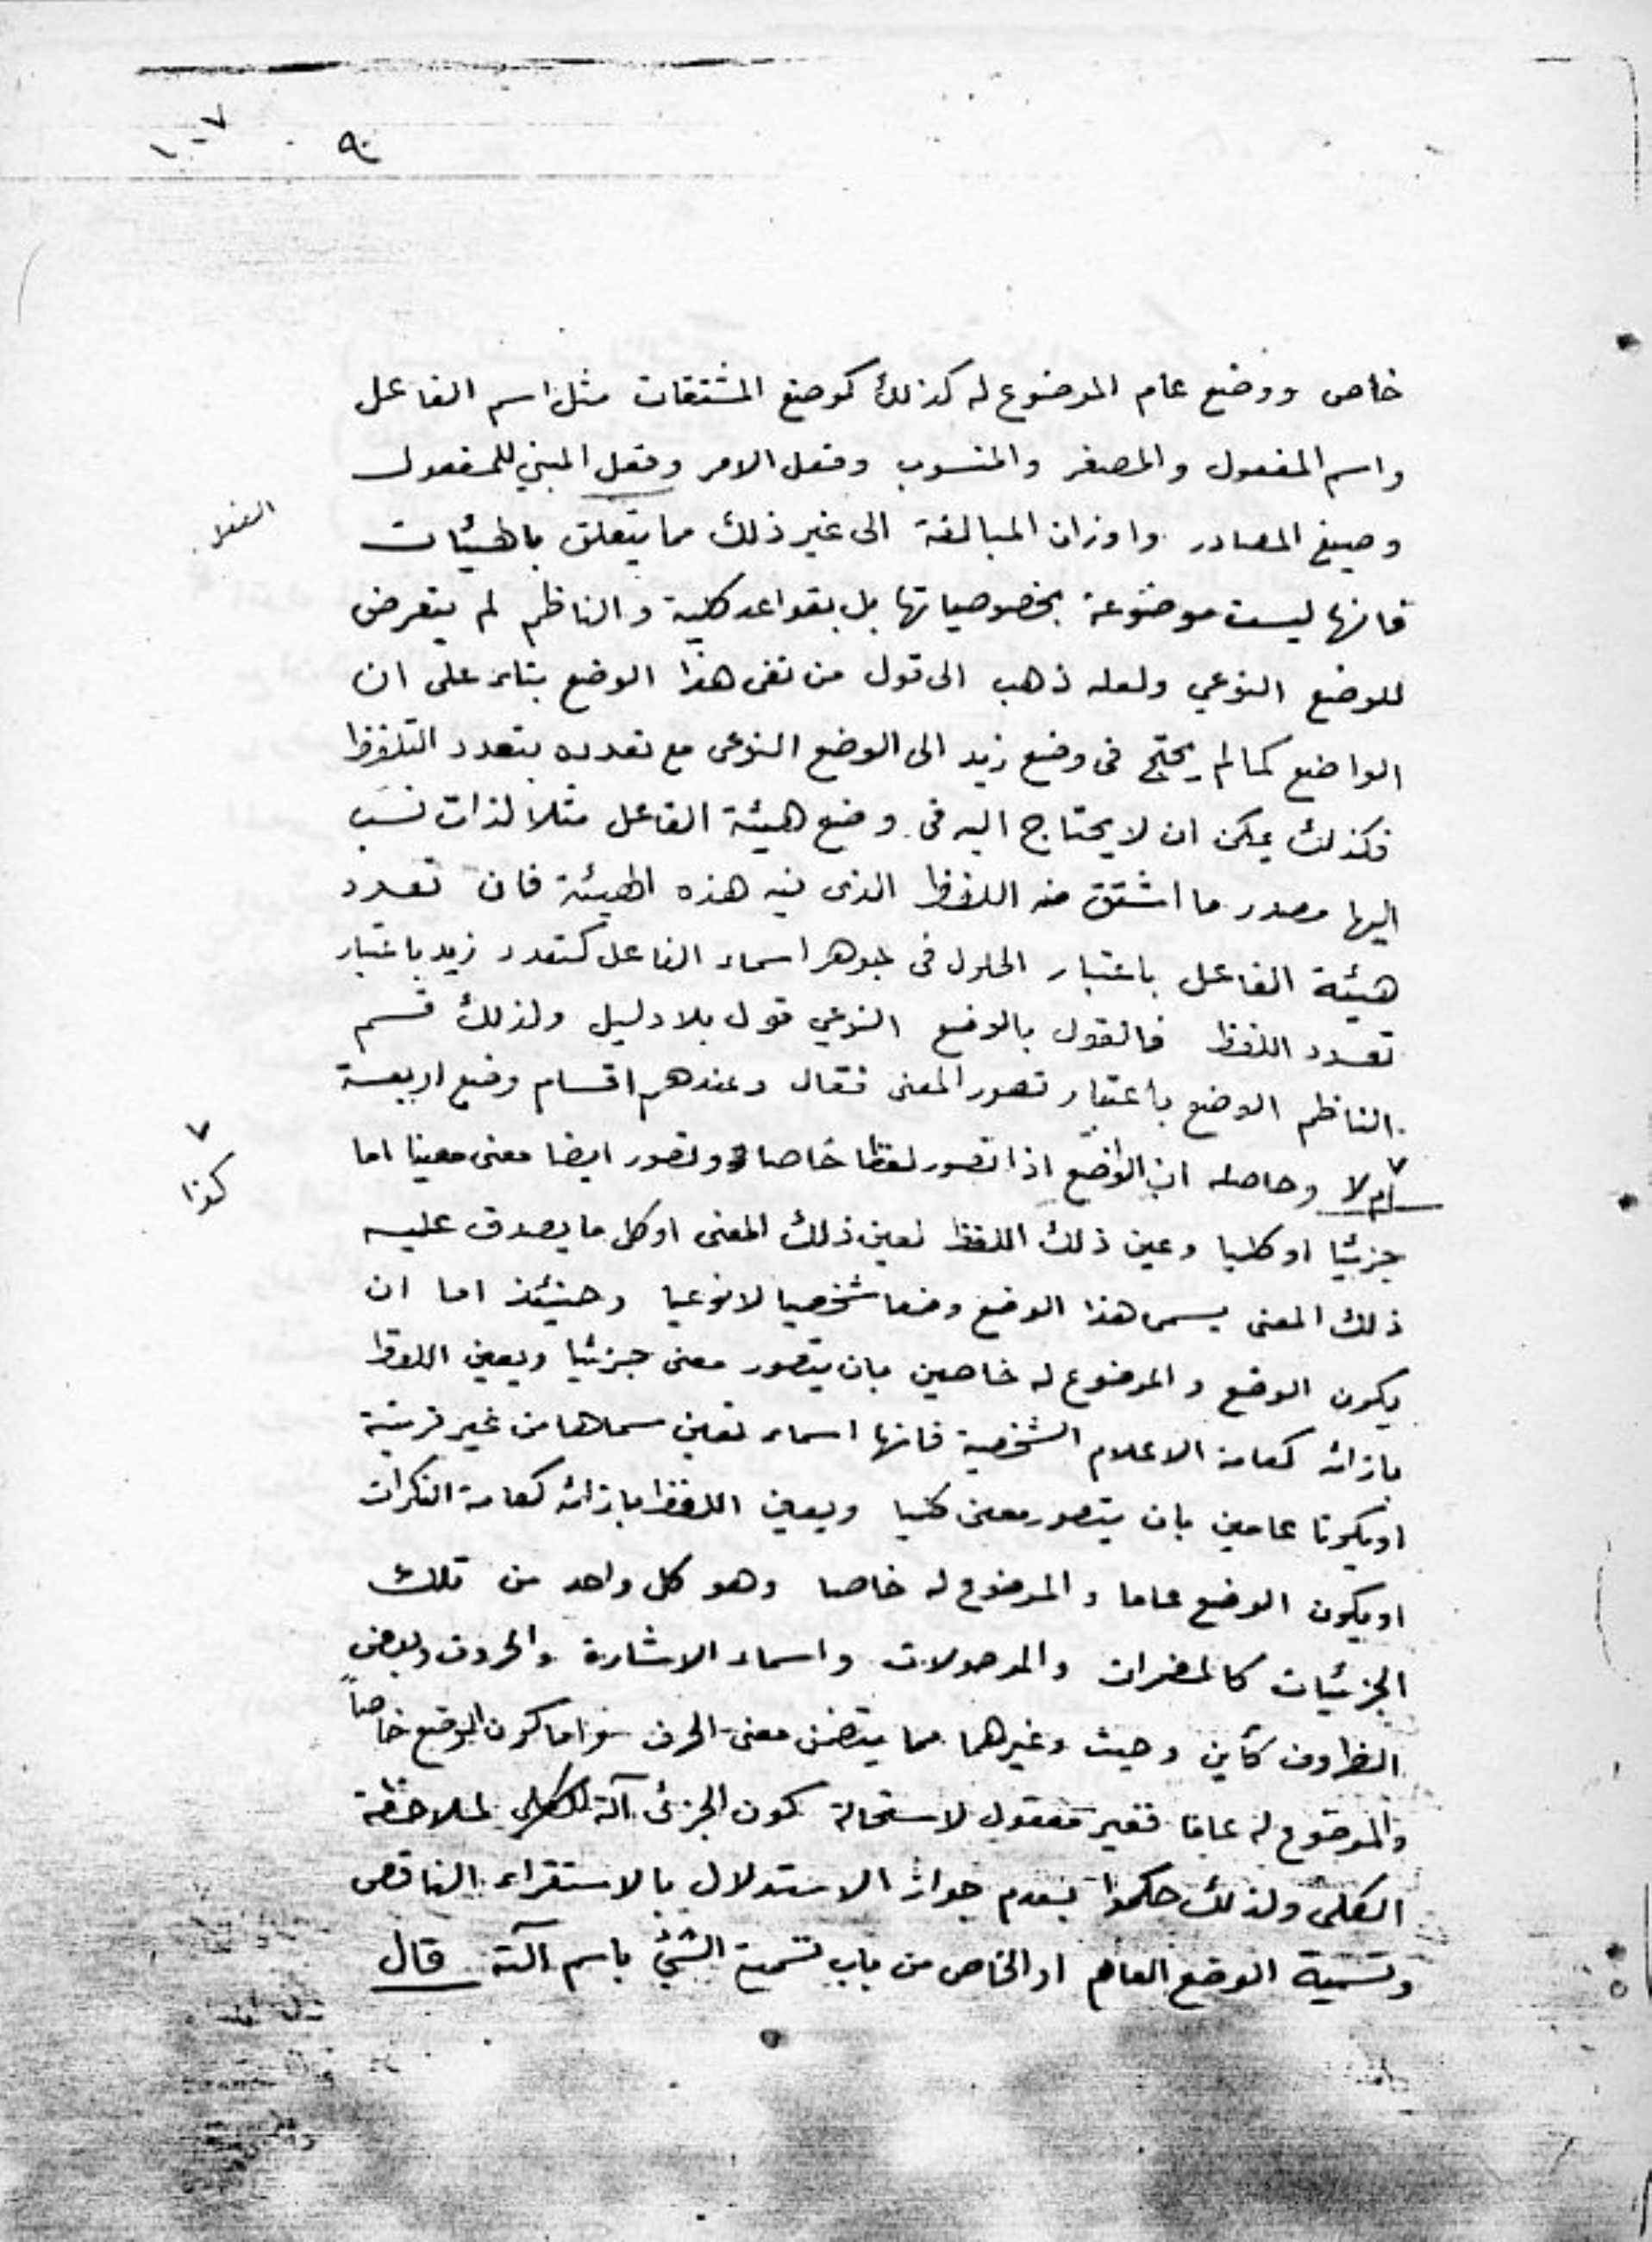 ٩٠
خاص ووضع عام الموضوع له كذلك كوضع المشتقات مثل اسم الفاعل
واسم المفعول والمصغر والمنسوب وفعل الامر وفعل المبني للمفعول
الفعل
وصيغ المصادر واوزان المبالغة الى غير ذلك مما يتعلق بالهيئات
فانها ليست موضوعة بخصوصياتها بل بقواعد كلية والناظم لم يتعرض
للوضع النوعي ولعله ذهب الى قول من نفى هذا الوضع بناء على ان
الواضع كما لم يحتج فى وضع زيد الى الوضع النوعى مع تعدده بتعدد التلفظ
فكذلك يمكن ان لا يحتاج اليه فى وضع هيئة الفاعل مثلا لذات نسب
اليها مصدر ما اشتق منه اللفظ الذى فيه هذه الهيئة فان تعدد
هيئة الفاعل باعتبار الحلول فى جوهر اسماء الفاعل كتعدد زيد باعتبار
تعدد اللفظ فالقول بالوضع النوعي قول بلا دليل ولذلك قسم
الناظم الوضع باعتبار تصور المعنى فقال وعندهم اقسام وضع اربعة
٧
ام لا وحاصله ان الواضع اذا تصور لفظا خاصا وتصور ايضا معنى معينا اما
كذا
جزئيا او كليا وعين ذلك اللفظ لعين ذلك المعنى او كل ما يصدق عليه
ذلك المعنى يسمى هذا الوضع وضعا شخصيا لا نوعيا وحينئذ اما ان
يكون الوضع والموضوع له خاصين بان يتصور معنى جزئيا ويعين اللفظ
بازائه كعامة الاعلام الشخصية فانها اسماء تعين مسماها من غير قرينة
او يكونا عامين بان يتصور معنى كليا ويعين اللفظ بازائه كعامة النكرات
او يكون الوضع عاما والموضوع له خاصا وهو كل واحد من تلك
الجزئيات كالمضمرات والموصولات واسماء الاشارة والحروف وبعض
الظروف كأين وحيث وغيرهما مما يتضمن معنى الحرف واما كون الوضع خاصاً
والموضوع له عاما فغير معقول لاستحالة كون الجزئى آلة لملاحظة
الكلى ولذلك حكموا بعدم جواز الاستدلال بالاستقراء الناقص
وتسمية الوضع العام او الخاص من باب تسمية الشئ باسم آلته قال